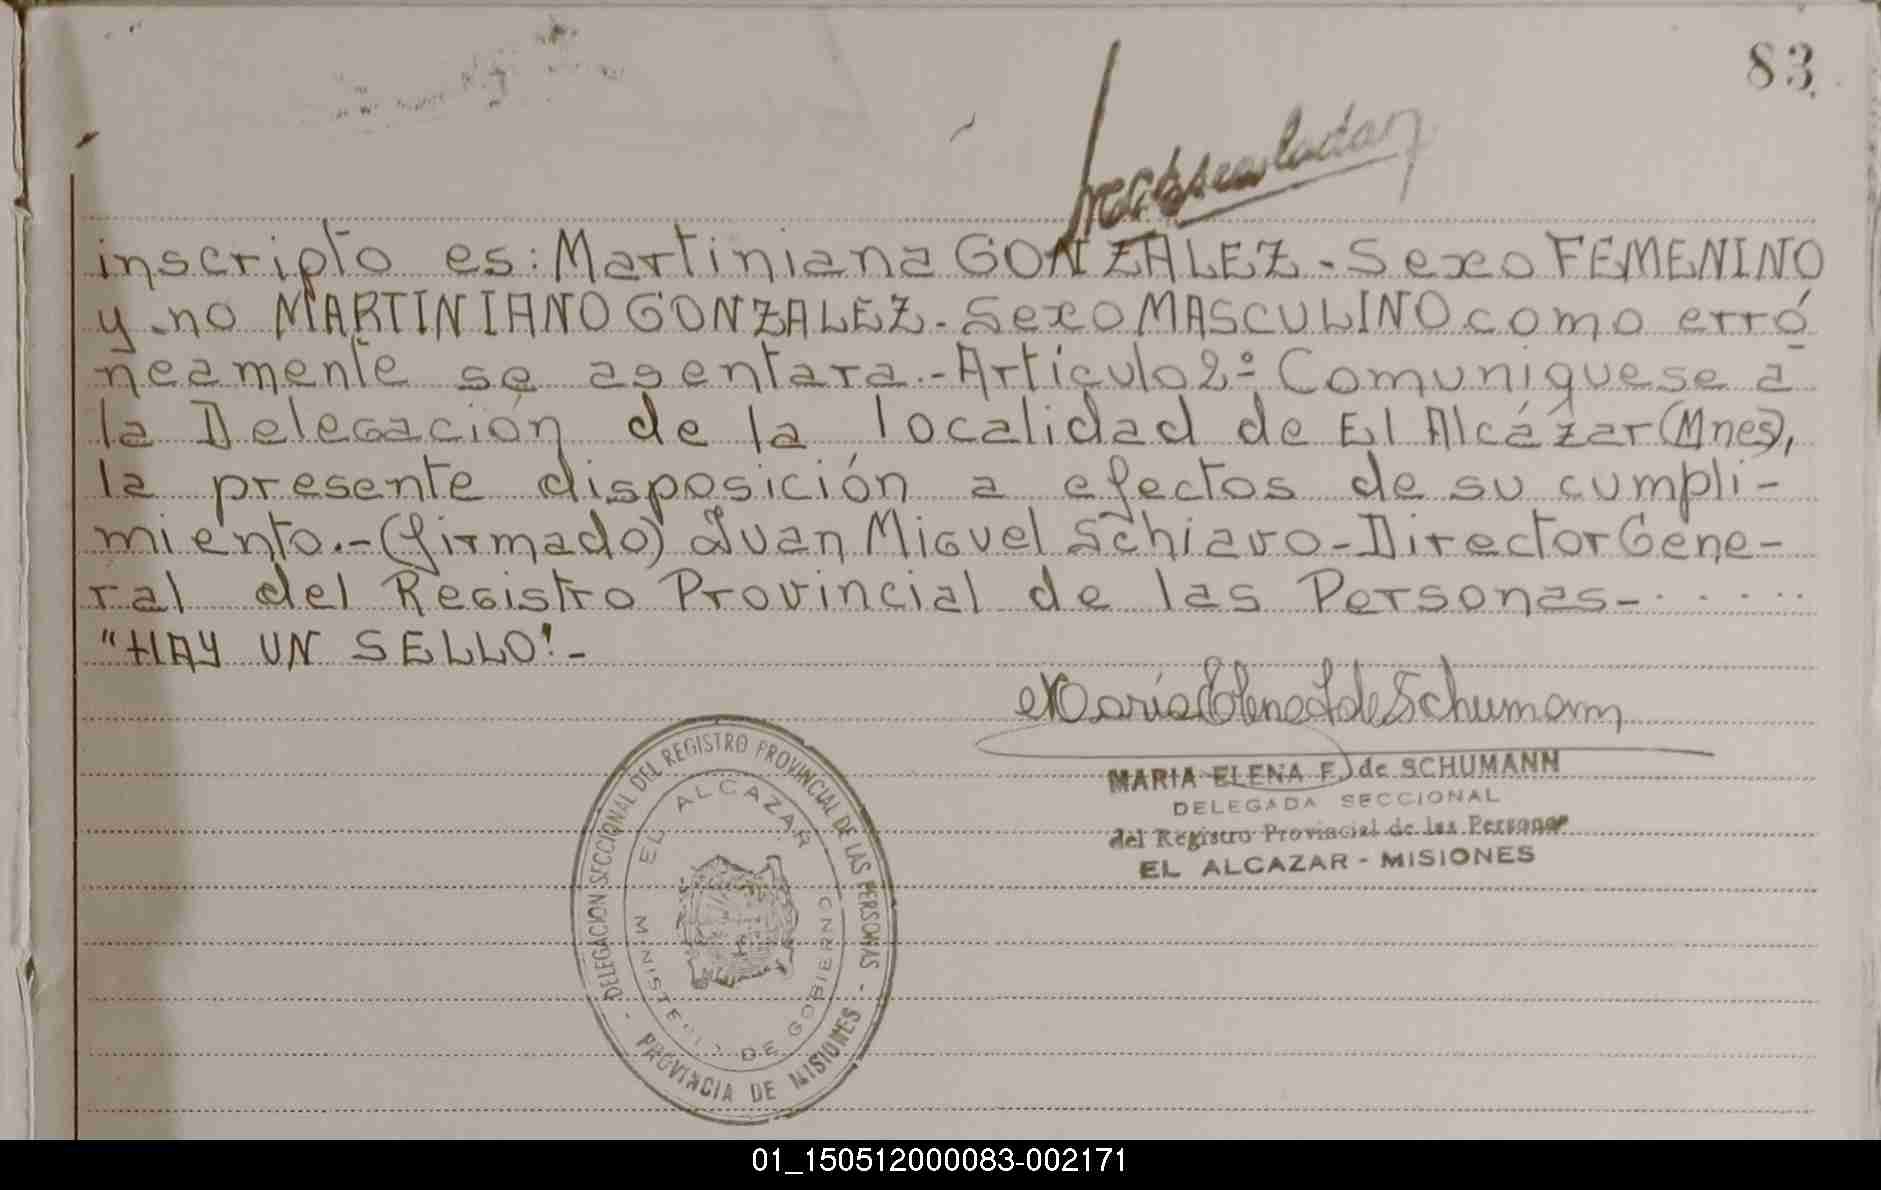 83
inscripto es: Martiniana GONZALEZ - Sexo FEMENINO
y no MARTINIANO GONZALEZ - Sexo MASCULINO como erró
neamente se asentara.- Artículo 2º Comuniquese a
la Delegación de la localidad de El Alcázar (Mnes),
la presente disposición a efectos de su cumpli-
miento.- (firmado) Juan Miguel Schiavo - Director Gene-
ral del Registro Provincial de las Personas-.....
"HAY UN SELLO".-
Maria Elena F de Schumann
MARIA ELENA F. de SCHUMANN
DELEGADA SECCIONAL
del Registro Provincial de las Personas
EL ALCAZAR - MISIONES
DELEGACION SECCIONAL DEL REGISTRO PROVINCIAL DE LAS PERSONAS
EL ALCAZAR
MINISTERIO DE GOBIERNO
- PROVINCIA DE MISIONES -
01_150512000083-002171